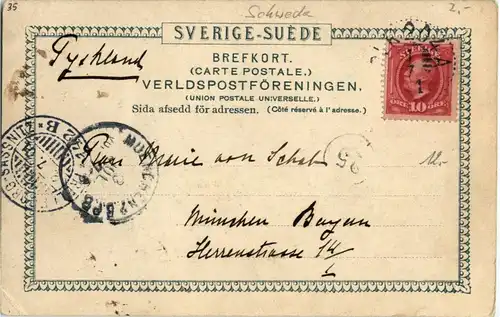 35
Schweda
2.-
SVERIGE-SUÈDE
Tyskland
BREFKORT.
(CARTE POSTALE.)
VERLDSPOSTFÖRENINGEN.
(UNION POSTALE UNIVERSELLE.)
Sida afsedd för adressen. (Côté réservé à l'adresse.)
SVERIGE
ÖRE 10 ÖRE
SASSNITZ
25
Frau Marie von Schab
München Bayern
Herrenstrasse